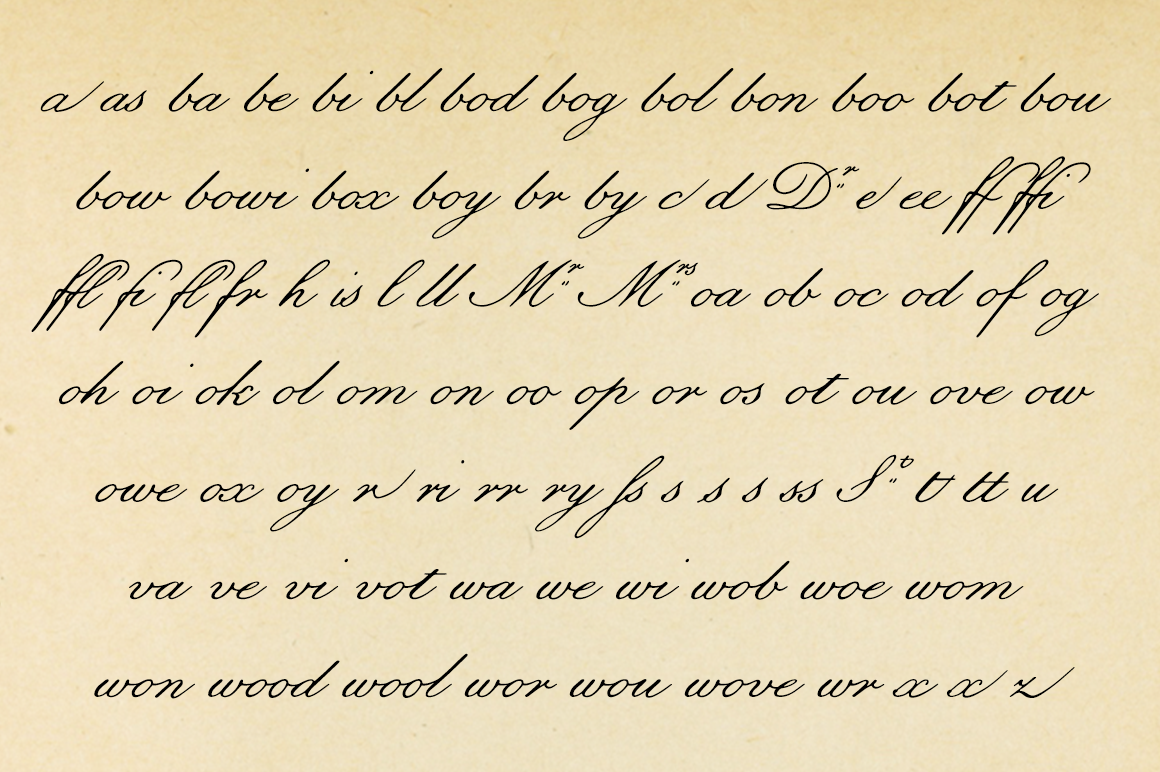 a as ba be bi bl bod bog bol bon boo bot bou
bow bowi box boy br by c d Dʳ e ee ff ffi
ffl fi fl fr h is l ll Mʳ Mʳˢ oa ob oc od of og
oh oi ok ol om on oo op or os ot ou ove ow
owe ox oy r ri rr ry ſs s s s ss Sᵗ t tt u
va ve vi vot wa we wi wob woe wom
won wood wool wor wou wove wr x x z